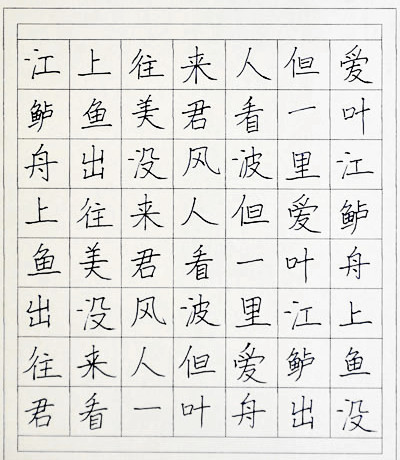 江上往来人但爱
鲈鱼美君看一叶
舟出没风波里江
上往来人但爱鲈
鱼美君看一叶舟
出没风波里江上
往来人但爱鲈鱼
君看一叶舟出没